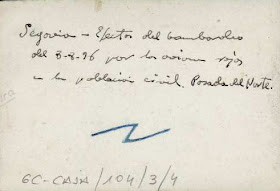 Segovia - Efectos del bombardeo
del 3-8-36 por los aviones rojos
en la población civil. Posada del Norte.
GC-CAJA/104/3/4